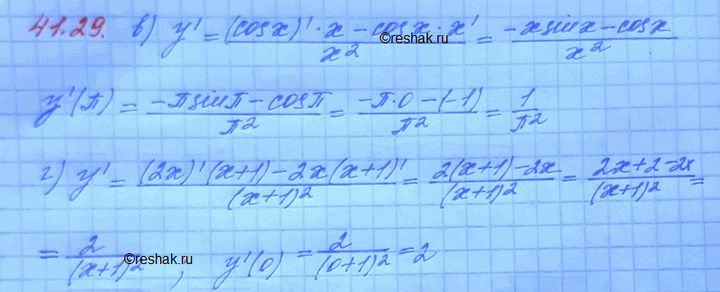 41.29. в) y' = ((cosx)'·x − cosx·x')/x² = (−xsinx − cosx)/x²
©reshak.ru
y'(π) = (−πsinπ − cosπ)/π² = (−π·0 − (−1))/π² = 1/π²
г) y' = ((2x)'(x+1) − 2x(x+1)')/(x+1)² = (2(x+1) − 2x)/(x+1)² = (2x+2−2x)/(x+1)² =
= 2/(x+1)², y'(0) = 2/(0+1)² = 2
©reshak.ru